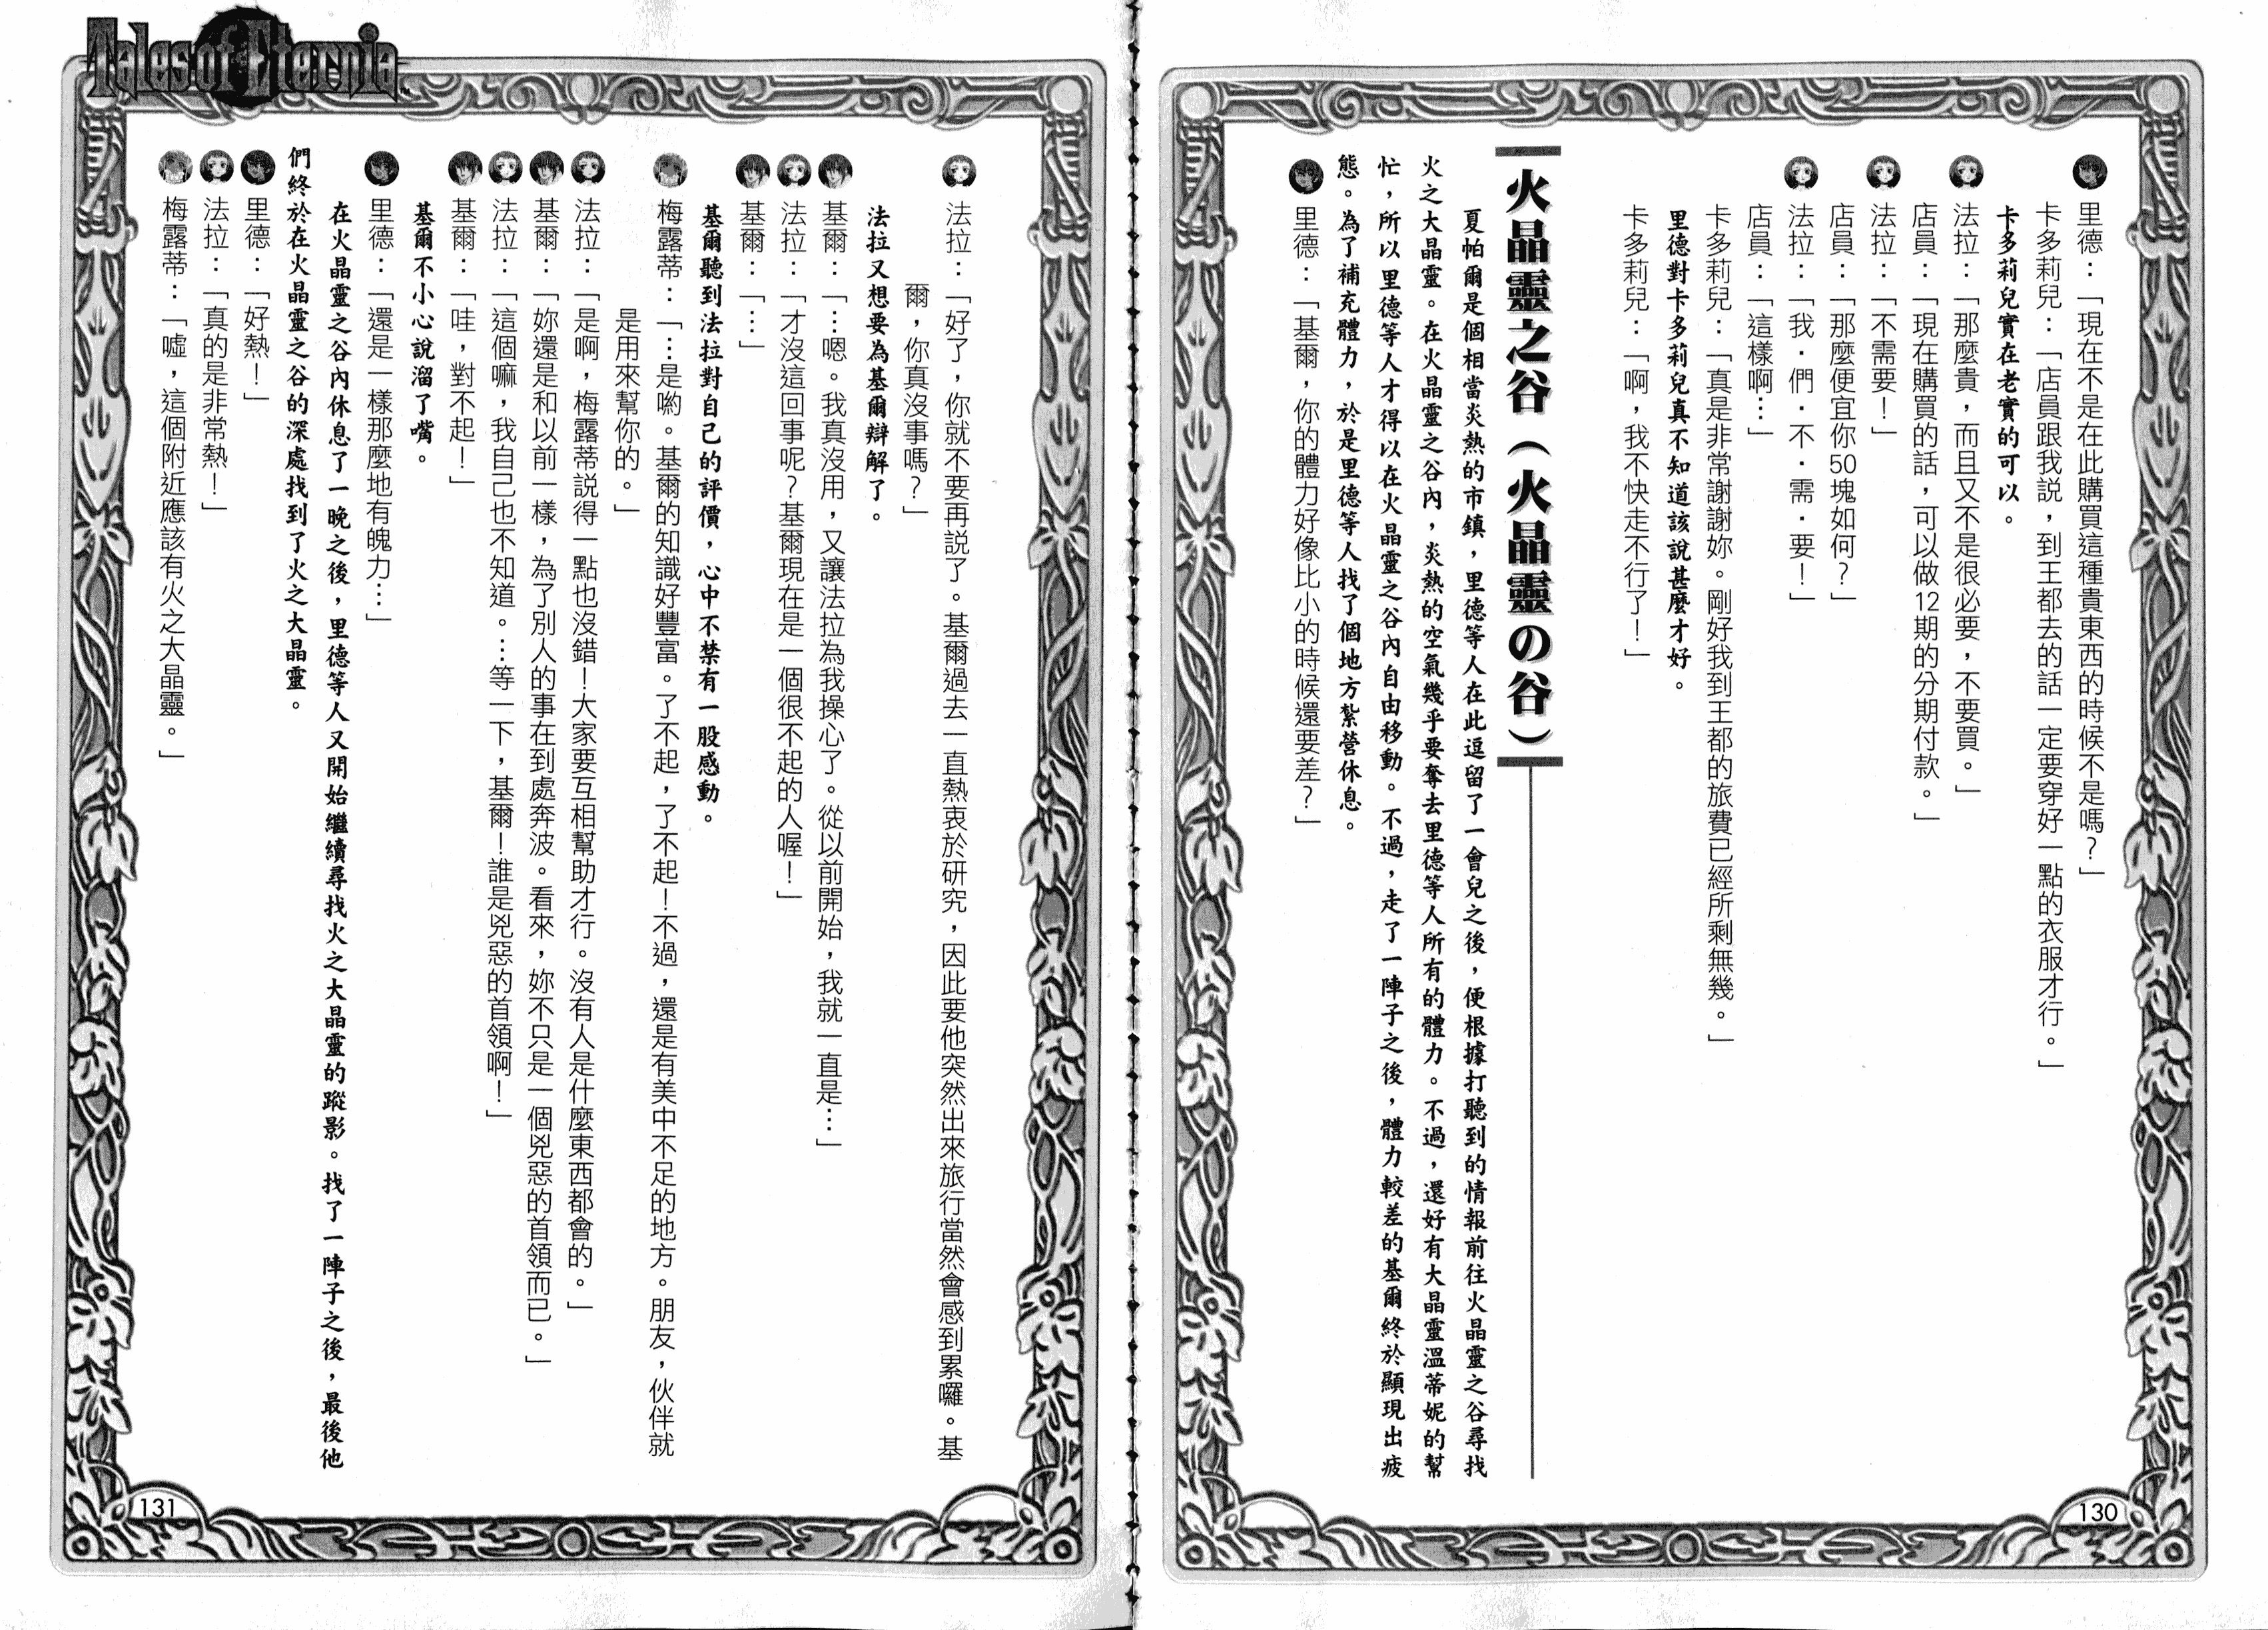 里德：「現在不是在此購買這種貴東西的時候不是嗎？」
卡多莉兒：「店員跟我説，到王都去的話一定要穿好一點的衣服才行。」
卡多莉兒實在老實的可以。
法拉：「那麼貴，而且又不是很必要，不要買。」
店員：「現在購買的話，可以做12期的分期付款。」
法拉：「不需要！」
店員：「那麼便宜你50塊如何？」
法拉：「我．們．不．需．要！」
店員：「這樣啊…」
卡多莉兒：「真是非常謝謝妳。剛好我到王都的旅費已經所剩無幾。」
里德對卡多莉兒真不知道該說甚麼才好。
卡多莉兒：「啊，我不快走不行了！」
火晶靈之谷（火晶靈の谷）
夏帕爾是個相當炎熱的市鎮，里德等人在此逗留了一會兒之後，便根據打聽到的情報前往火晶靈之谷尋找
火之大晶靈。在火晶靈之谷內，炎熱的空氣幾乎要奪去里德等人所有的體力。不過，還好有大晶靈溫蒂妮的幫
忙，所以里德等人才得以在火晶靈之谷內自由移動。不過，走了一陣子之後，體力較差的基爾終於顯現出疲
態。為了補充體力，於是里德等人找了個地方紮營休息。
里德：「基爾，你的體力好像比小的時候還要差？」
130
Tales of Eternia
法拉：「好了，你就不要再説了。基爾過去一直熱衷於研究，因此要他突然出來旅行當然會感到累囉。基
爾，你真沒事嗎？」
法拉又想要為基爾辯解了。
基爾：「…嗯。我真沒用，又讓法拉為我操心了。從以前開始，我就一直是…」
法拉：「才沒這回事呢？基爾現在是一個很不起的人喔！」
基爾：「…」
基爾聽到法拉對自己的評價，心中不禁有一股感動。
梅露蒂：「…是喲。基爾的知識好豐富。了不起，了不起！不過，還是有美中不足的地方。朋友，伙伴就
是用來幫你的。」
法拉：「是啊，梅露蒂説得一點也沒錯！大家要互相幫助才行。沒有人是什麼東西都會的。」
基爾：「妳還是和以前一樣，為了別人的事在到處奔波。看來，妳不只是一個兇惡的首領而已。」
法拉：「這個嘛，我自己也不知道。…等一下，基爾！誰是兇惡的首領啊！」
基爾：「哇，對不起！」
基爾不小心說溜了嘴。
里德：「還是一樣那麼地有魄力…」
在火晶靈之谷內休息了一晚之後，里德等人又開始繼續尋找火之大晶靈的蹤影。找了一陣子之後，最後他
們終於在火晶靈之谷的深處找到了火之大晶靈。
里德：「好熱！」
法拉：「真的是非常熱！」
梅露蒂：「噓，這個附近應該有火之大晶靈。」
131